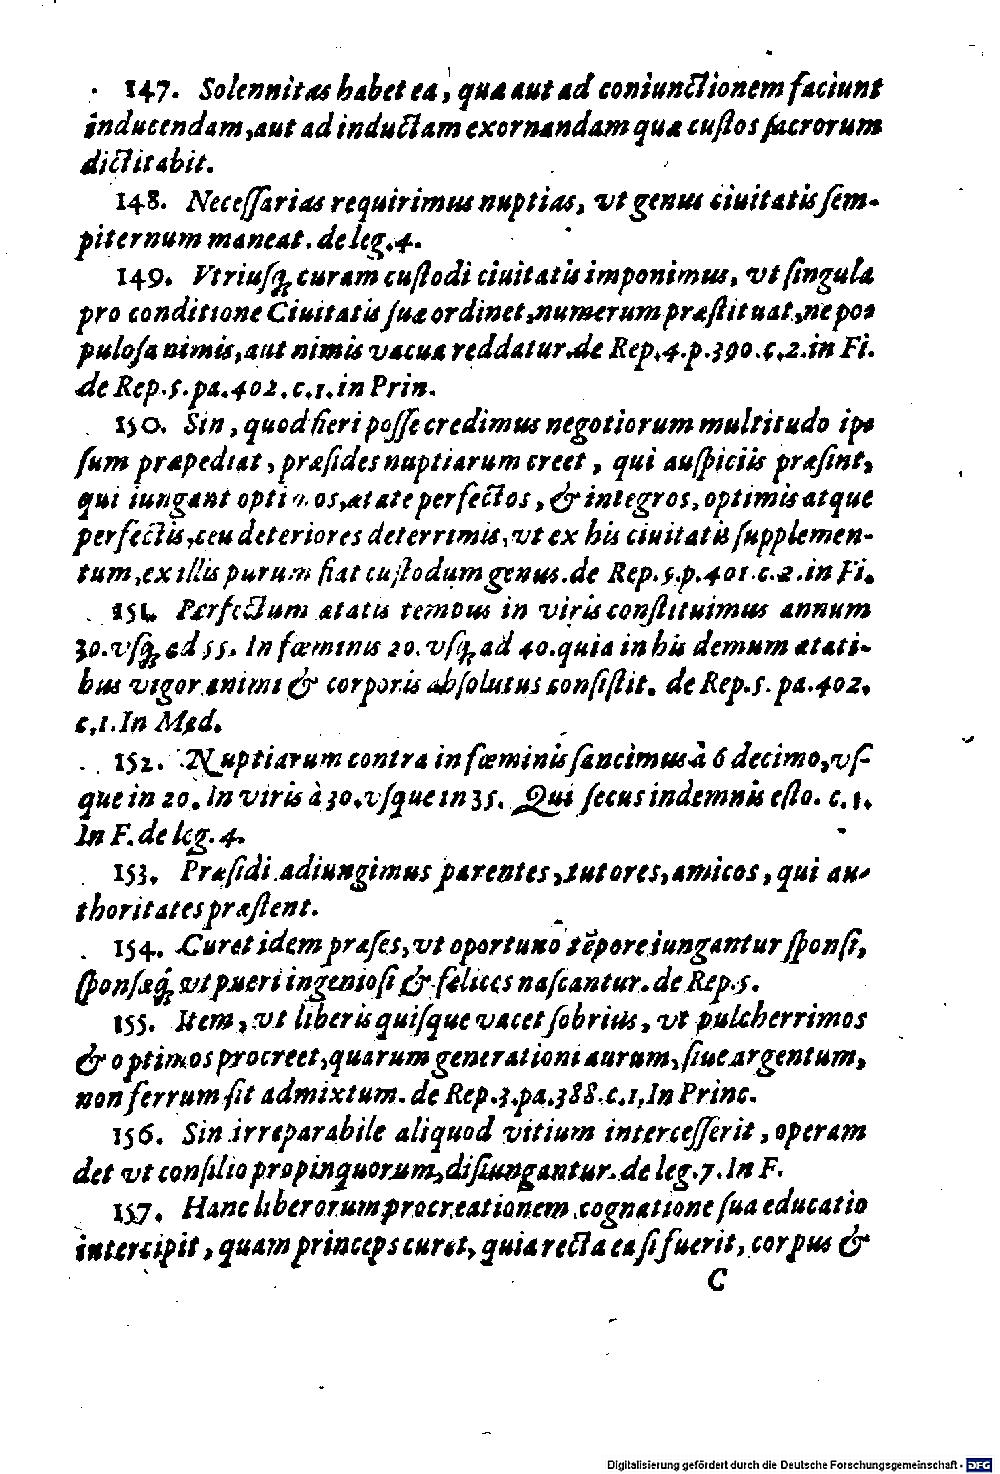 147. Solennitas habet ea, quæ aut ad coniunctionem faciunt
inducendam, aut ad inductam exornandam quæ custos sacrorum
dictitabit.
148. Necessarias requirimus nuptias, vt genus ciuitatis sem-
piternum maneat. de leg. 4.
149. Vtriusq; curam custodi ciuitatis imponimus, vt singula
pro conditione Ciuitatis suæ ordinet, numerum præstituat, ne po-
pulosa nimis, aut nimis vacua reddatur. de Rep. 4. p. 390. c. 2. in Fi.
de Rep. 5. pa. 402. c. 1. in Prin.
150. Sin, quod fieri posse credimus negotiorum multitudo ip-
sum præpediat, præsides nuptiarum creet, qui auspiciis præsint,
qui iungant optimos, ætate perfectos, & integros, optimis atque
perfectis, ceu deteriores deterrimis, vt ex his ciuitatis supplemen-
tum, ex illis purum fiat custodum genus. de Rep. 5. p. 401. c. 2. in Fi.
151. Perfectum ætatis tempus in viris constituimus annum
30. vsq; ad 55. In fœminis 20. vsq; ad 40. quia in his demum ætati-
bus vigor animi & corporis absolutus consistit. de Rep. 5. pa. 402.
c. 1. In Med.
152. Nuptiarum contra in fœminis sancimus à 6 decimo, vs-
que in 20. In viris à 30. vsque in 35. Qui secus indemnis esto. c. 1.
In F. de leg. 4.
153. Præsidi adiungimus parentes, tutores, amicos, qui au-
thoritates præstent.
154. Curet idem præses, vt oportuno tēpore iungantur sponsi,
sponsæq; vt pueri ingeniosi & felices nascantur. de Rep. 5.
155. Item, vt liberis quisque vacet sobrius, vt pulcherrimos
& optimos procreet, quarum generationi aurum, siue argentum,
non ferrum sit admixtum. de Rep. 3. pa. 388. c. 1. In Princ.
156. Sin irreparabile aliquod vitium intercesserit, operam
det vt consilio propinquorum, disiungantur. de leg. 7. In F.
157. Hanc liberorum procreationem cognatione sua educatio
intercipit, quam princeps curet, quia recta ea si fuerit, corpus &
C
Digitalisierung gefördert durch die Deutsche Forschungsgemeinschaft - DFG